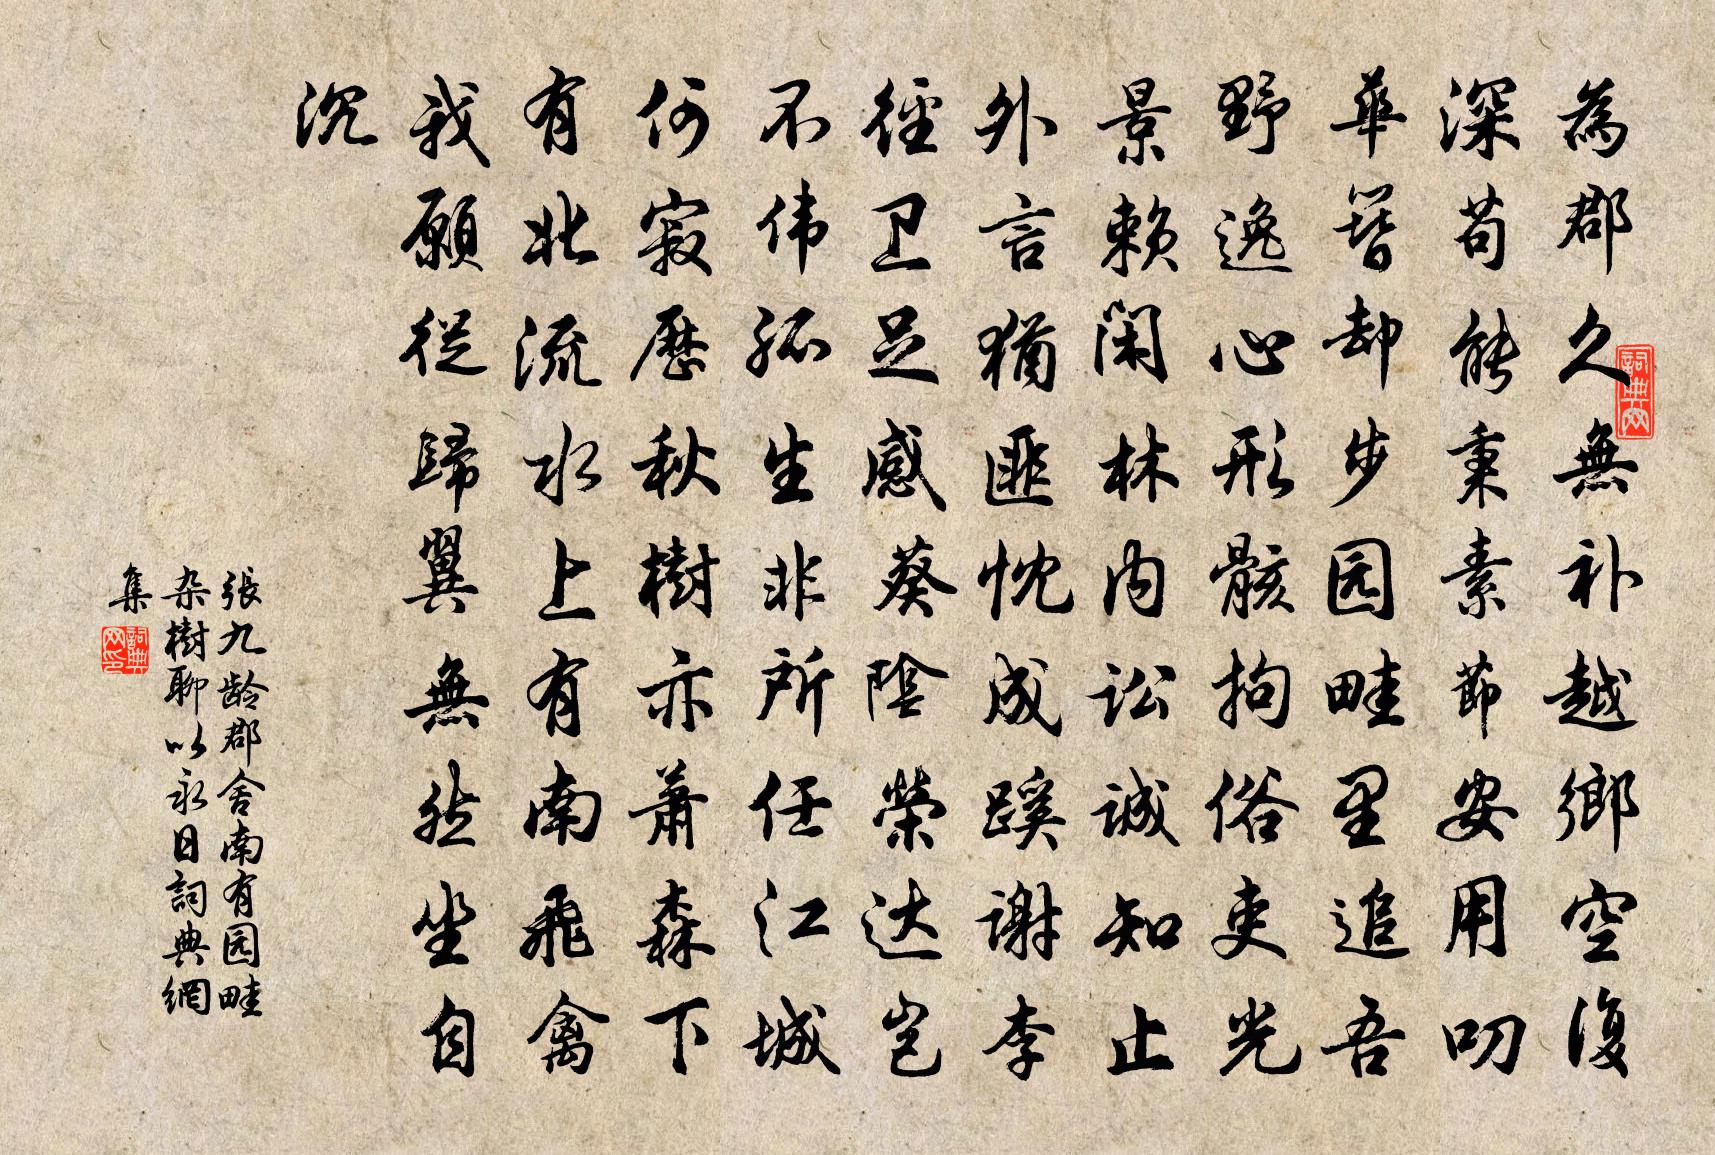 為郡久無补越鄉空復
深苟能秉素節安用叨
華簪却步园畦里追吾
野逸心形骸拘俗吏光
景赖闲林内讼诚知止
外言猶匪忱成蹊谢李
徑卫足感葵陰榮达岂
不伟孤生非所任江城
何寂歷秋樹亦萧森下
有北流水上有南飛禽
我願從歸翼無然坐自
沉
張九龄郡舍南有园畦
杂樹聊以永日詞典網
集
詞典网
詞典网印